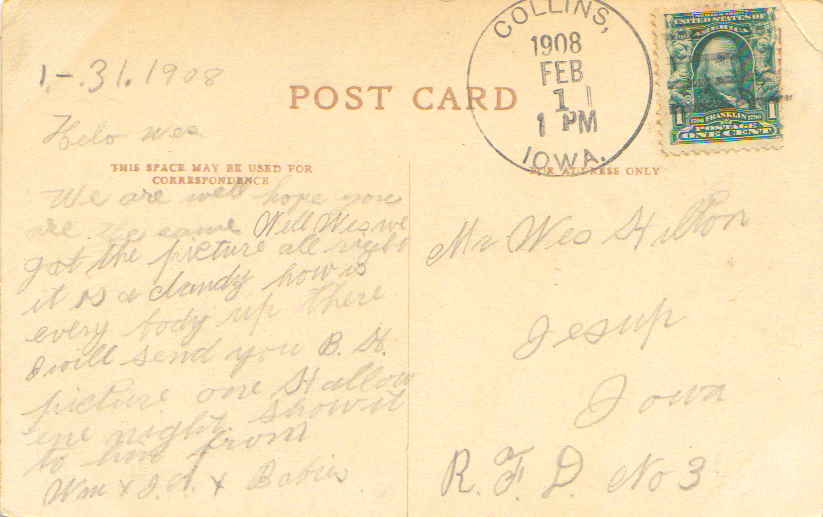 COLLINS,
1908
FEB
1
1 PM
IOWA.
UNITED STATES OF
AMERICA
1 FRANKLIN 1
POSTAGE
ONE CENT
1.-.31.1908
POST CARD
Helo Wes
THIS SPACE MAY BE USED FOR
CORRESPONDENCE
We are well hope you
are the same Well Wes we
got the picture all right
it is a dandy how is
every body up there
I will send you B. H.
picture one Hallow
ene night show it
to him from
Wm & J. A. & Babies
FOR ADDRESS ONLY
Mr Wes Hilton
Jesup
Iowa
R. F. D. No 3